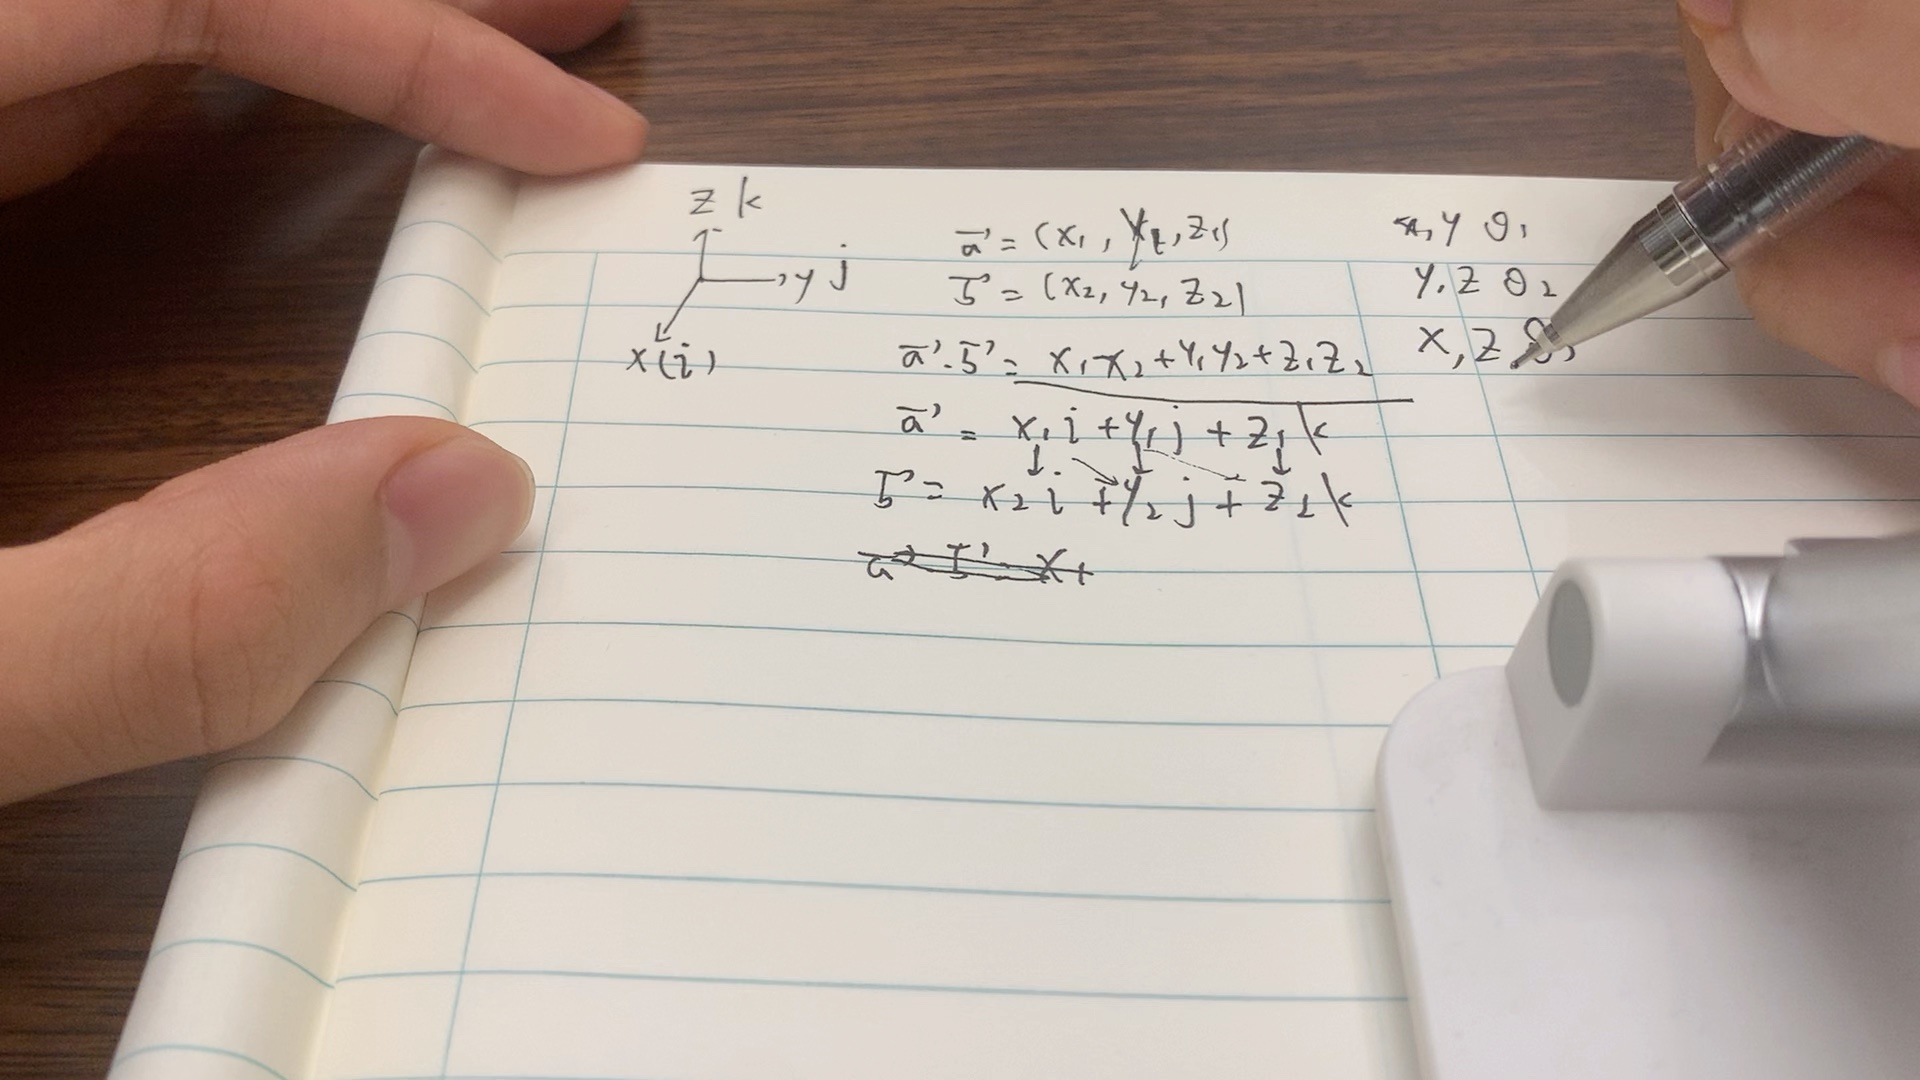 z k
y j
x(i)
a⃗ = (x₁, y₁, z₁)
b⃗ = (x₂, y₂, z₂)
a⃗·b⃗ = x₁x₂+y₁y₂+z₁z₂
a⃗ = x₁i+y₁j+z₁k
b⃗ = x₂i+y₂j+z₂k
a⃗ b⃗ x₁
x,y θ₁
y,z θ₂
x,z θ₃